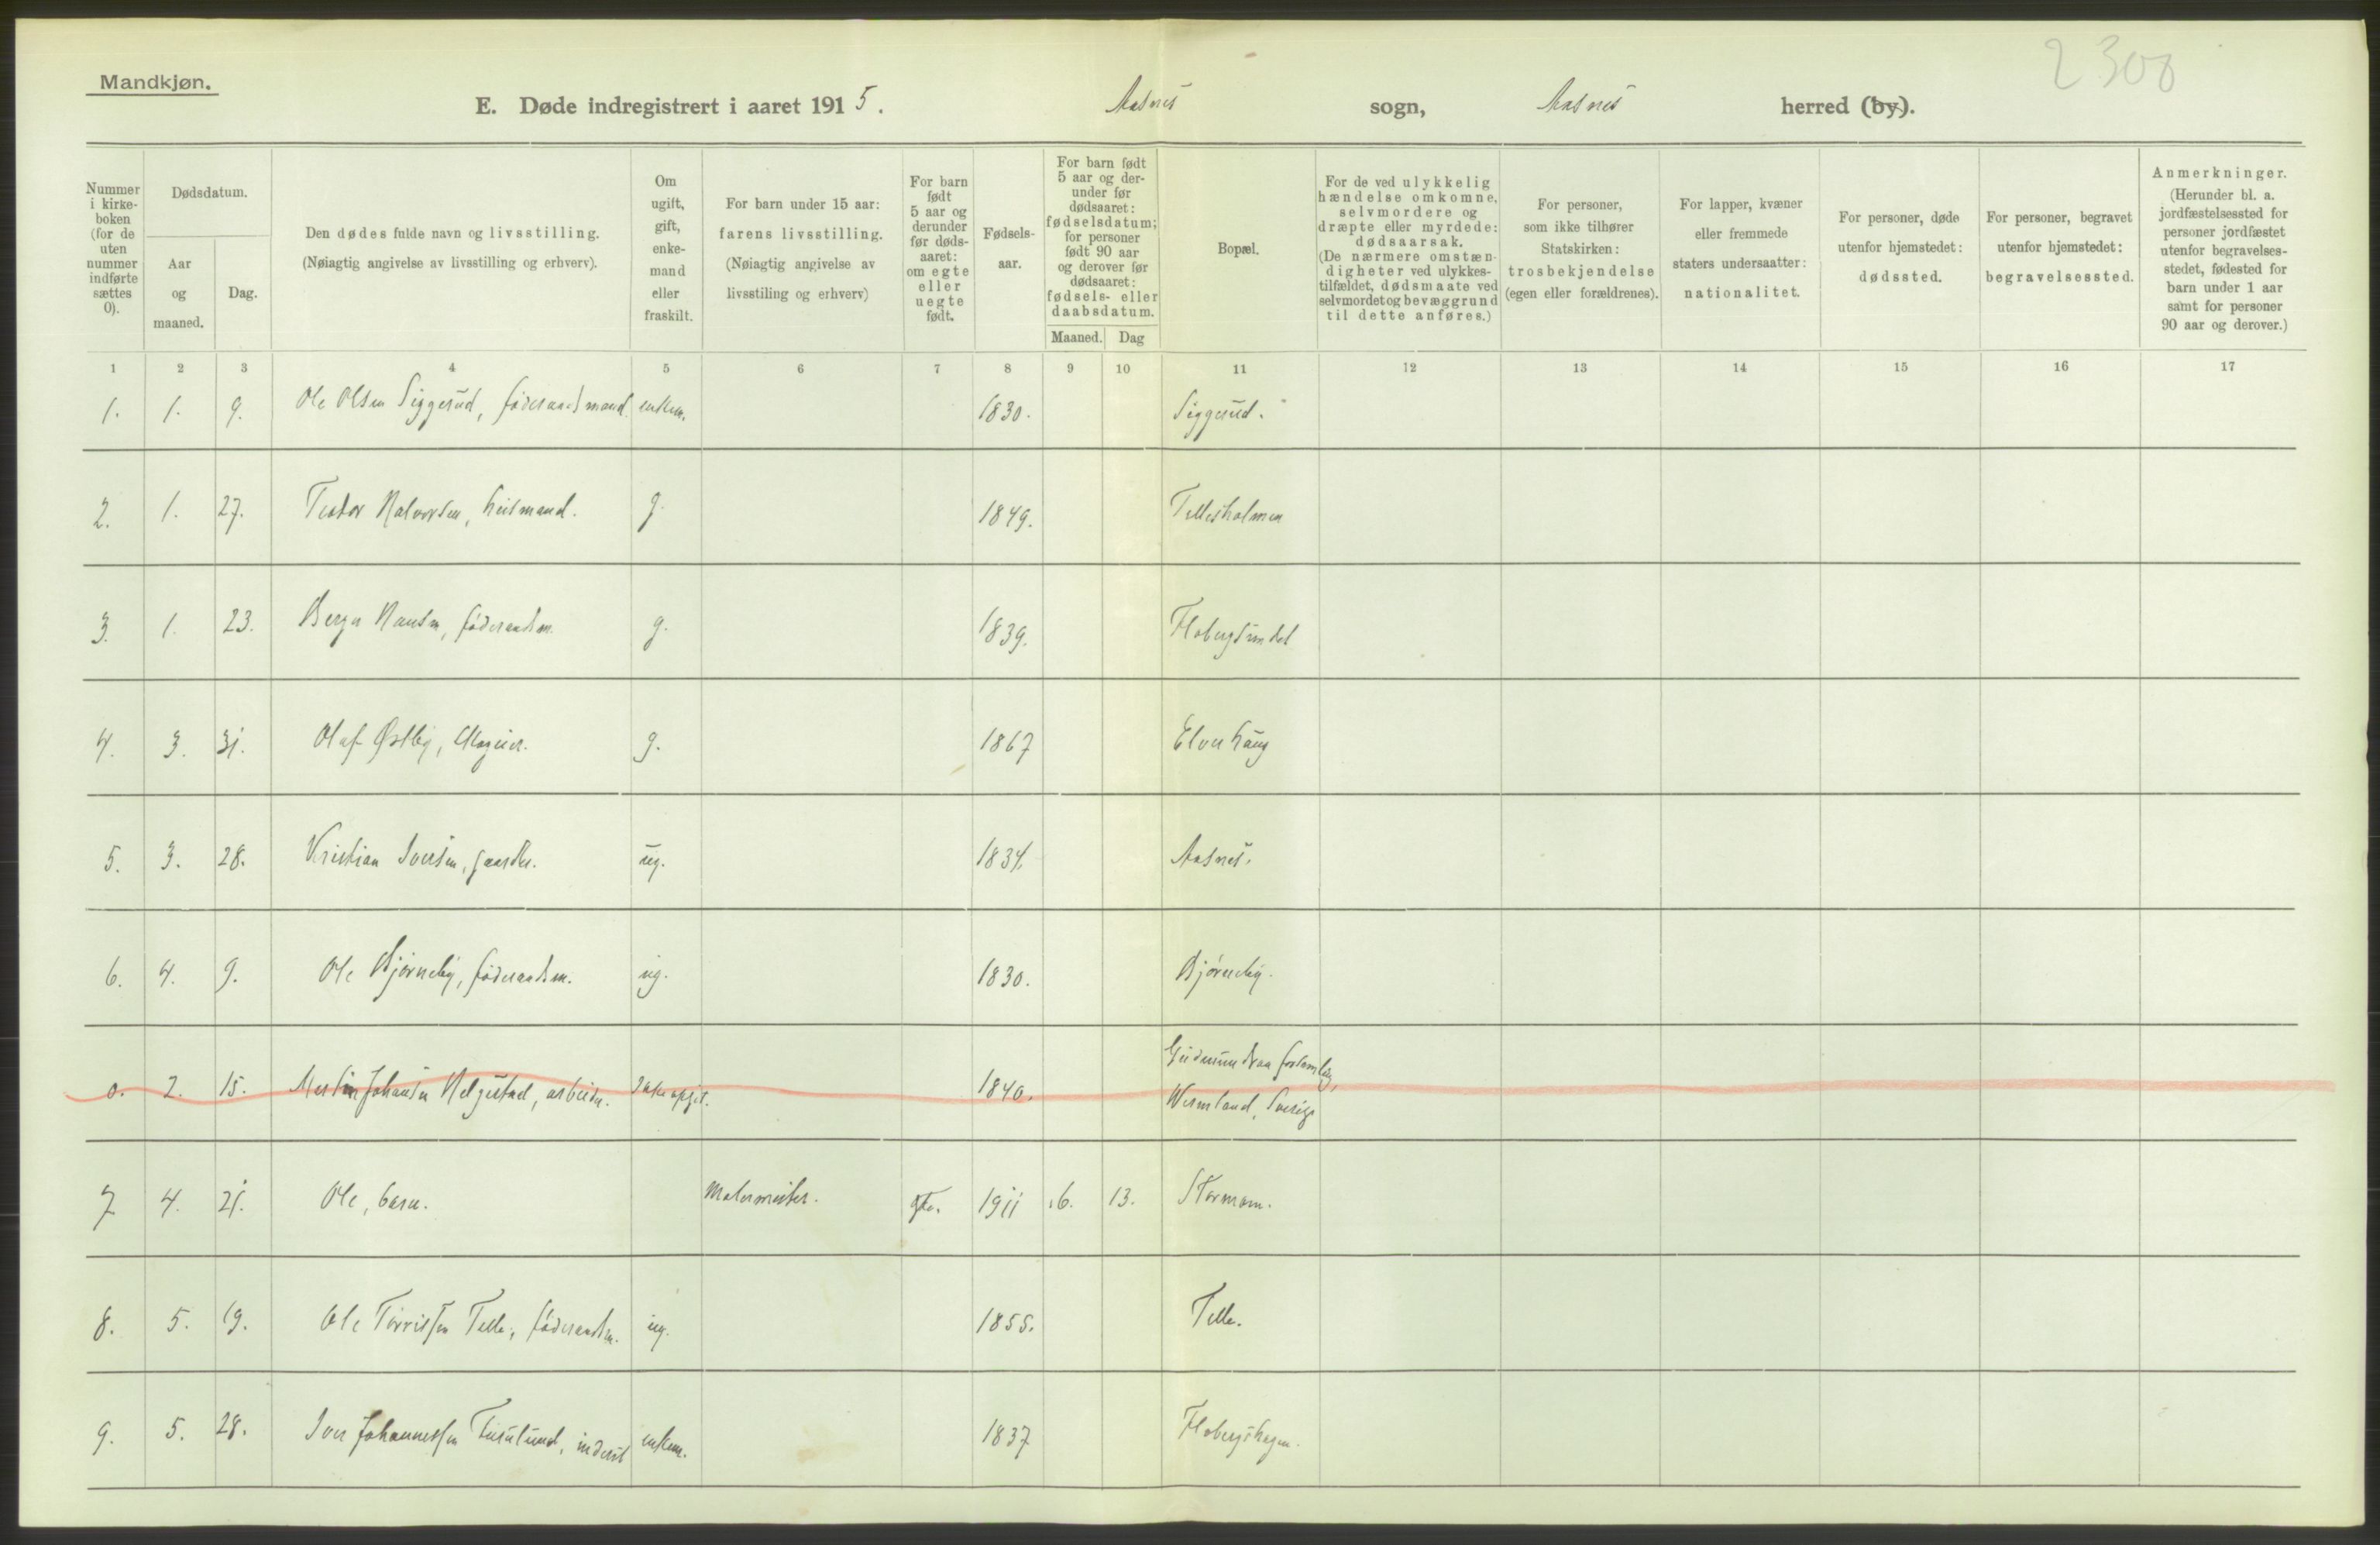 Mandkjøn.
2300
E. Døde indregistrert i aaret 1915. Aasnes sogn, Aasnes herred (by).
Nummer i kirke-boken (for de uten nummer indførte sættes 0).
Dødsdatum.
Aar og maaned.
Dag.
Den dødes fulde navn og livsstilling.
(Nøiagtig angivelse av livsstilling og erhverv).
Om ugift, gift, enke-mand eller fraskilt.
For barn under 15 aar: farens livsstilling.
(Nøiagtig angivelse av livsstiling og erhverv)
For barn født 5 aar og derunder før døds-aaret: om egte eller uegte født.
Fødsels-aar.
For barn født 5 aar og der-under før dødsaaret: fødselsdatum; for personer født 90 aar og derover før dødsaaret: fødsels- eller daabsdatum.
Maaned. Dag
Bopæl.
For de ved ulykkelig hændelse omkomne, selvmordere og dræpte eller myrdede: dødsaarsak.
(De nærmere omstæn-digheter ved ulykkes-tilfældet, dødsmaate ved selvmordet og bevæggrund til dette anføres.)
For personer, som ikke tilhører Statskirken: trosbekjendelse (egen eller forældrenes).
For lapper, kvæner eller fremmede staters undersaatter: nationalitet.
For personer, døde utenfor hjemstedet: dødssted.
For personer, begravet utenfor hjemstedet: begravelsessted.
Anmerkninger.
(Herunder bl. a. jordfæstelsessted for personer jordfæstet utenfor begravelses-stedet, fødested for barn under 1 aar samt for personer 90 aar og derover.)
1 2 3 4 5 6 7 8 9 10 11 12 13 14 15 16 17
1. 1. 9. Ole Olsen Siggerud, føderaadsmand. enkem. 1830. Siggerud.
2. 1. 27. Teodor Halvorsen, husmand. g. 1849. Tellesholmen
3. 1. 23. Berger Hansen, føderaadsm. g. 1839. Flobergsundet
4. 3. 31. Olaf Østby, g. 1867 Elverhaug
5. 3. 28. Kristian Iversen, gaardbr. ug. 1834. Aasnes.
6. 4. 9. Ole Bjørneby, føderaadsm. ug. 1830. Bjørneby.
0. 2. 15. Martin Johansen Helgestad, arbeider. Ikke opgit. 1840. forsamling,
Wermland, Sverige
7 4. 21. Ole, barn. Malermester. gte. 1911 6. 13. Stormoen.
8. 5. 19. Ole Torrissen Telle, føderaadsm. ug. 1855. Telle.
9. 5. 28. Iver Johannessen inderst enkem. 1837 Flobergshagen.